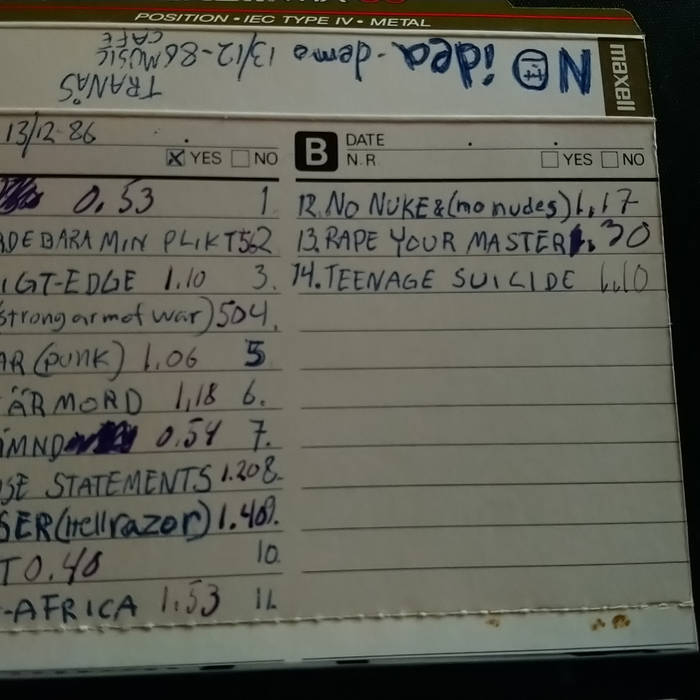 POSITION • IEC TYPE IV • METAL
maxell
NO idea - demo 13/12-86 MUSIC CAFE
TRANÅS
13/12-86
YES NO
B DATE
N.R YES NO
0.53 1.
DE BARA MIN PLIKT 56 2
IGT-EDGE 1.10 3.
strong arm of war) 50 4.
AR (PUNK) 1.06 5
ÄR MORD 1,18 6.
MND 0.54 7.
SE STATEMENTS 1.20 8.
SER (Hellrazor) 1.40 9.
T 0.40 10.
-AFRICA 1.53 11.
12. NO NUKE & (mo nudes) 1,17
13. RAPE YOUR MASTER 1.30
14. TEENAGE SUICIDE 1.10